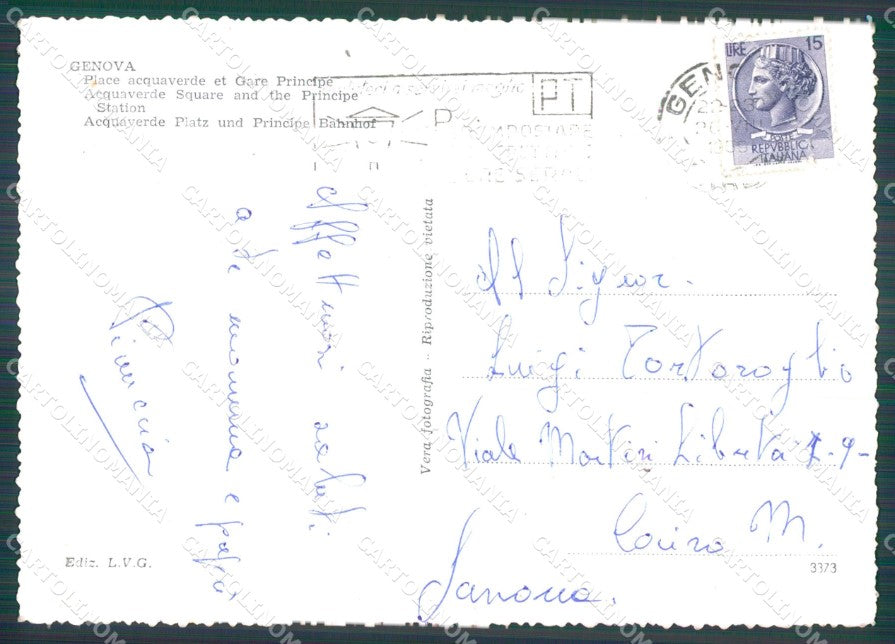 GENOVA
Place acquaverde et Gare Principe
Acquaverde Square and the Principe
Station
Acquaverde Platz und Principe Bahnhof
PT
GENO
LIRE 15
REPVBBLICA
ITALIANA
Affettuosi saluti
a te mamma e papà
Vera fotografia - Riproduzione vietata
Al Signor.
Luigi Tortoroglio
Viale Martiri Libertà 1-9-
Cairo M.
Savona.
Ediz. L.V.G.
3373
CARTOLINOMANIA